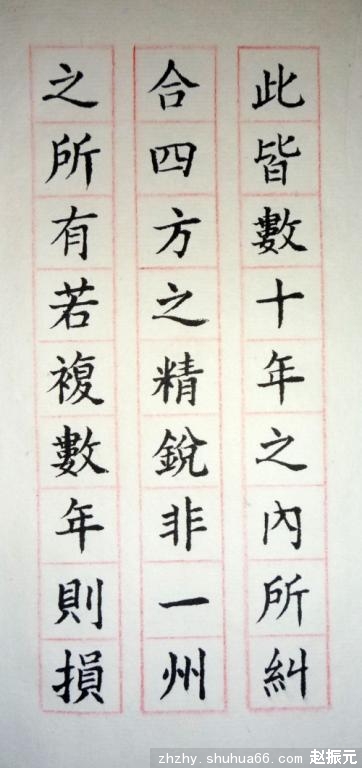 此皆數十年之內所糾
合四方之精銳非一州
之所有若複數年則損
zhzhy.shuhua66.com 赵振元